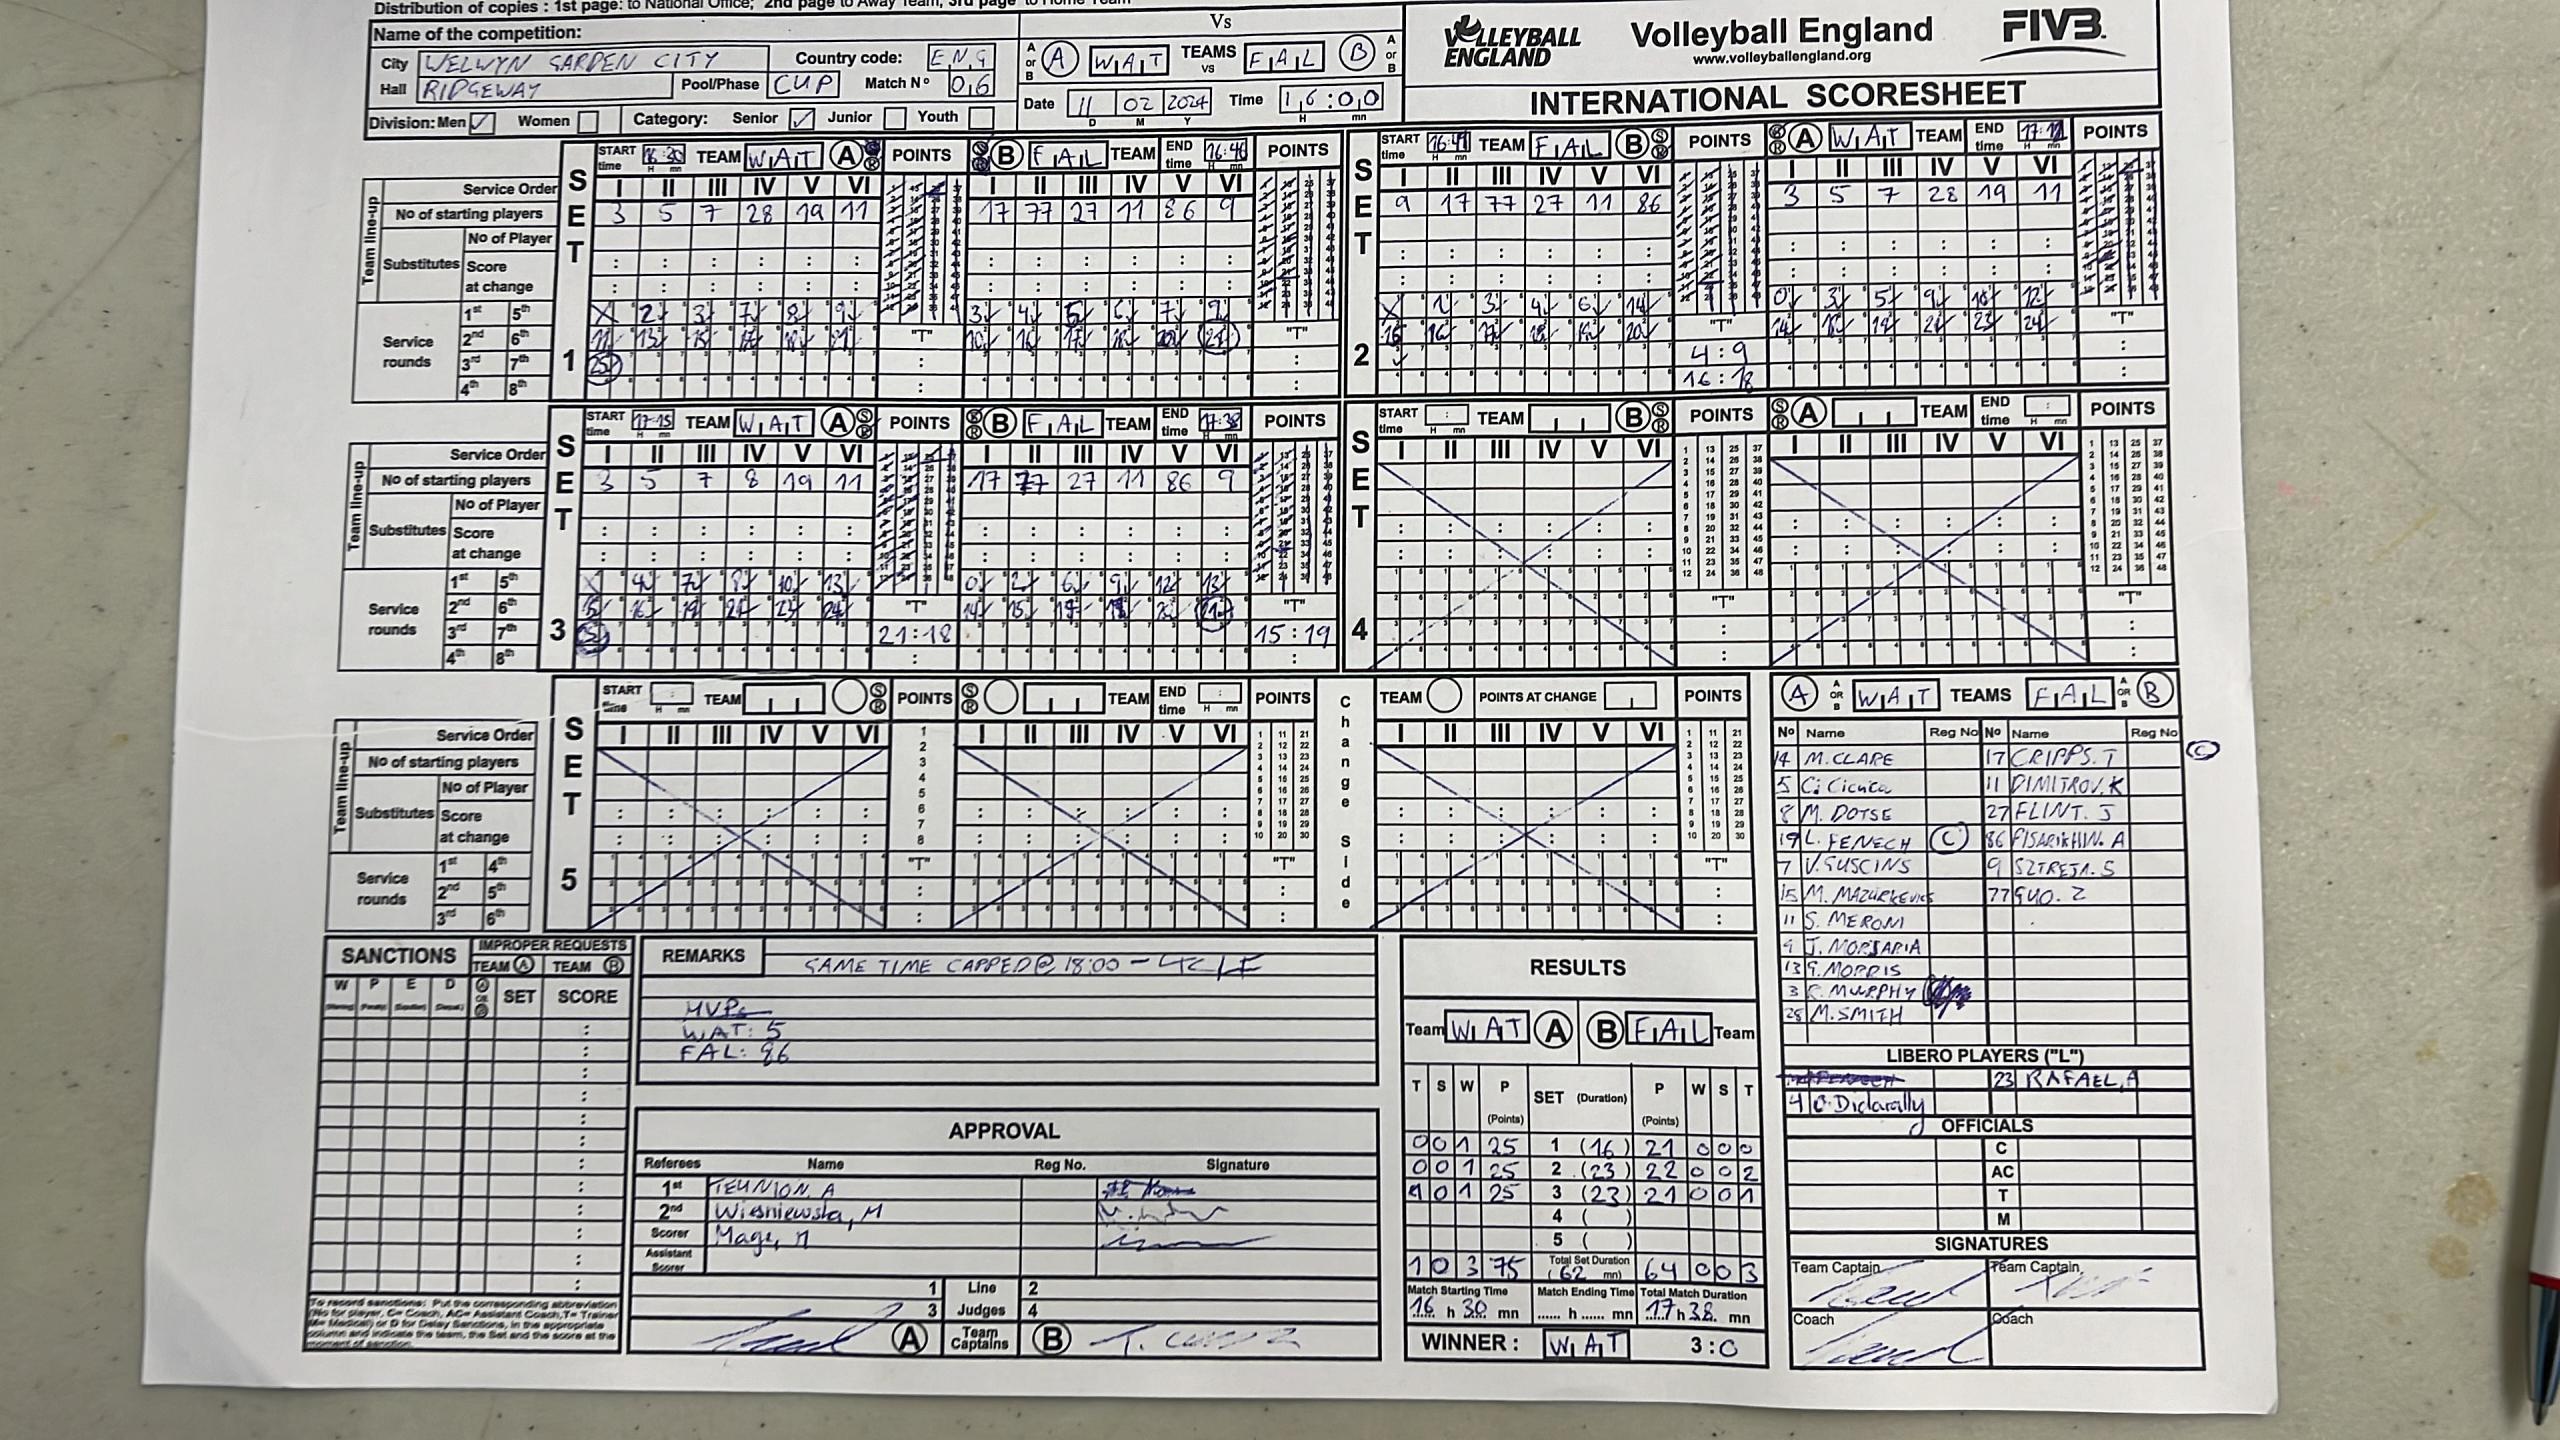 Distribution of copies : 1st page: to National Office; 2nd page to Away Team, 3rd page to Home Team
Name of the competition:
City WELWYN GARDEN CITY Country code: ENG
Hall RIDGEWAY Pool/Phase CUP Match Nº 06
Division: Men ✓ Women Category: Senior ✓ Junior Youth
Vs
A or B A WAT TEAMS vs FAL B A or B
Date 11 02 2024 Time 16:00
D M Y H mn
VOLLEYBALL ENGLAND
Volleyball England
www.volleyballengland.org
FIVB
INTERNATIONAL SCORESHEET
SET 1
START time 16:30 TEAM WAT A POINTS B FAL TEAM END time 16:46 POINTS
Service Order I II III IV V VI I II III IV V VI
No of starting players 3 5 7 28 19 11 17 77 27 11 86 9
Team line-up
Substitutes No of Player
Score at change
Service rounds
1st 5th X 2 3 7 8 9 3 4 5 6 7 9
2nd 6th 11 13 15 17 18 21 10 16 17 18 20 21
3rd 7th 25
4th 8th
"T" "T"
SET 2
START time 16:49 TEAM FAL B POINTS A WAT TEAM END time 17:12 POINTS
I II III IV V VI I II III IV V VI
9 17 77 27 11 86 3 5 7 28 19 11
X 1 3 4 6 14 0 3 5 9 10 12
15 16 17 18 19 20 14 18 19 21 23 24
"T" "T"
4:9
16:18
SET 3
START time 17:15 TEAM WAT A POINTS B FAL TEAM END time 17:38 POINTS
Service Order I II III IV V VI I II III IV V VI
No of starting players 3 5 7 8 19 11 17 77 27 11 86 9
Team line-up
Substitutes No of Player
Score at change
Service rounds
1st 5th X 4 7 8 10 13 0 2 6 9 12 13
2nd 6th 15 16 19 21 23 24 14 15 17 18 20 21
3rd 7th 25
4th 8th
"T" 21:18 "T" 15:19
SET 4
START time TEAM B POINTS A TEAM END time POINTS
I II III IV V VI I II III IV V VI
"T" "T"
SET 5
START time TEAM POINTS TEAM END time POINTS
Change Side
TEAM POINTS AT CHANGE POINTS
Service Order I II III IV V VI I II III IV V VI I II III IV V VI
No of starting players
Team line-up
Substitutes No of Player
Score at change
Service rounds
1st 4th
2nd 5th
3rd 6th
"T" "T" "T"
A A OR B WAT TEAMS FAL A OR B B
Nº Name Reg No Nº Name Reg No
14 M.CLARE 17 CRIPPS.T C
5 C. Cicuta 11 DIMITROV.K
8 M. DOTSE 27 FLINT. J
19 L. FENECH C 86 PISARIKHIN. A
7 V.GUSCINS 9 SZTREJA.S
15 M. MAZURKEVICS 77 GUO. Z
11 S. MERONI
9 J. MORJARIA
13 G. MORRIS
3 R. MURPHY
28 M.SMITH
LIBERO PLAYERS ("L")
23 RAFAEL,A
4
OFFICIALS
C
AC
T
M
SIGNATURES
Team Captain Team Captain
Coach Coach
SANCTIONS
IMPROPER REQUESTS
TEAM A TEAM B
W P E D A OR B SET SCORE
To record sanctions: Put the corresponding abbreviation (No for player, C= Coach, AC= Assistant Coach, T= Trainer M= Medical) or D for Delay Sanctions, in the appropriate column and indicate the team, the Set and the score at the moment of sanction.
REMARKS
GAME TIME CAPPED @ 18:00 -
MVPs
WAT: 5
FAL: 86
APPROVAL
Referees Name Reg No. Signature
1st TEUNION. A
2nd Wisniewska, M
Scorer Mage, M
Assistant Scorer
1 Line 2
3 Judges 4
A Team Captains B
RESULTS
Team WAT A B FAL Team
T S W P (Points) SET (Duration) P (Points) W S T
0 0 1 25 1 (16) 21 0 0 0
0 0 1 25 2 (23) 22 0 0 2
1 0 1 25 3 (23) 21 0 0 1
4 ( )
5 ( )
1 0 3 75 Total Set Duration (62 mn) 64 0 0 3
Match Starting Time Match Ending Time Total Match Duration
16 h 30 mn ...... h ...... mn 17 h 38 mn
WINNER : WAT 3:0